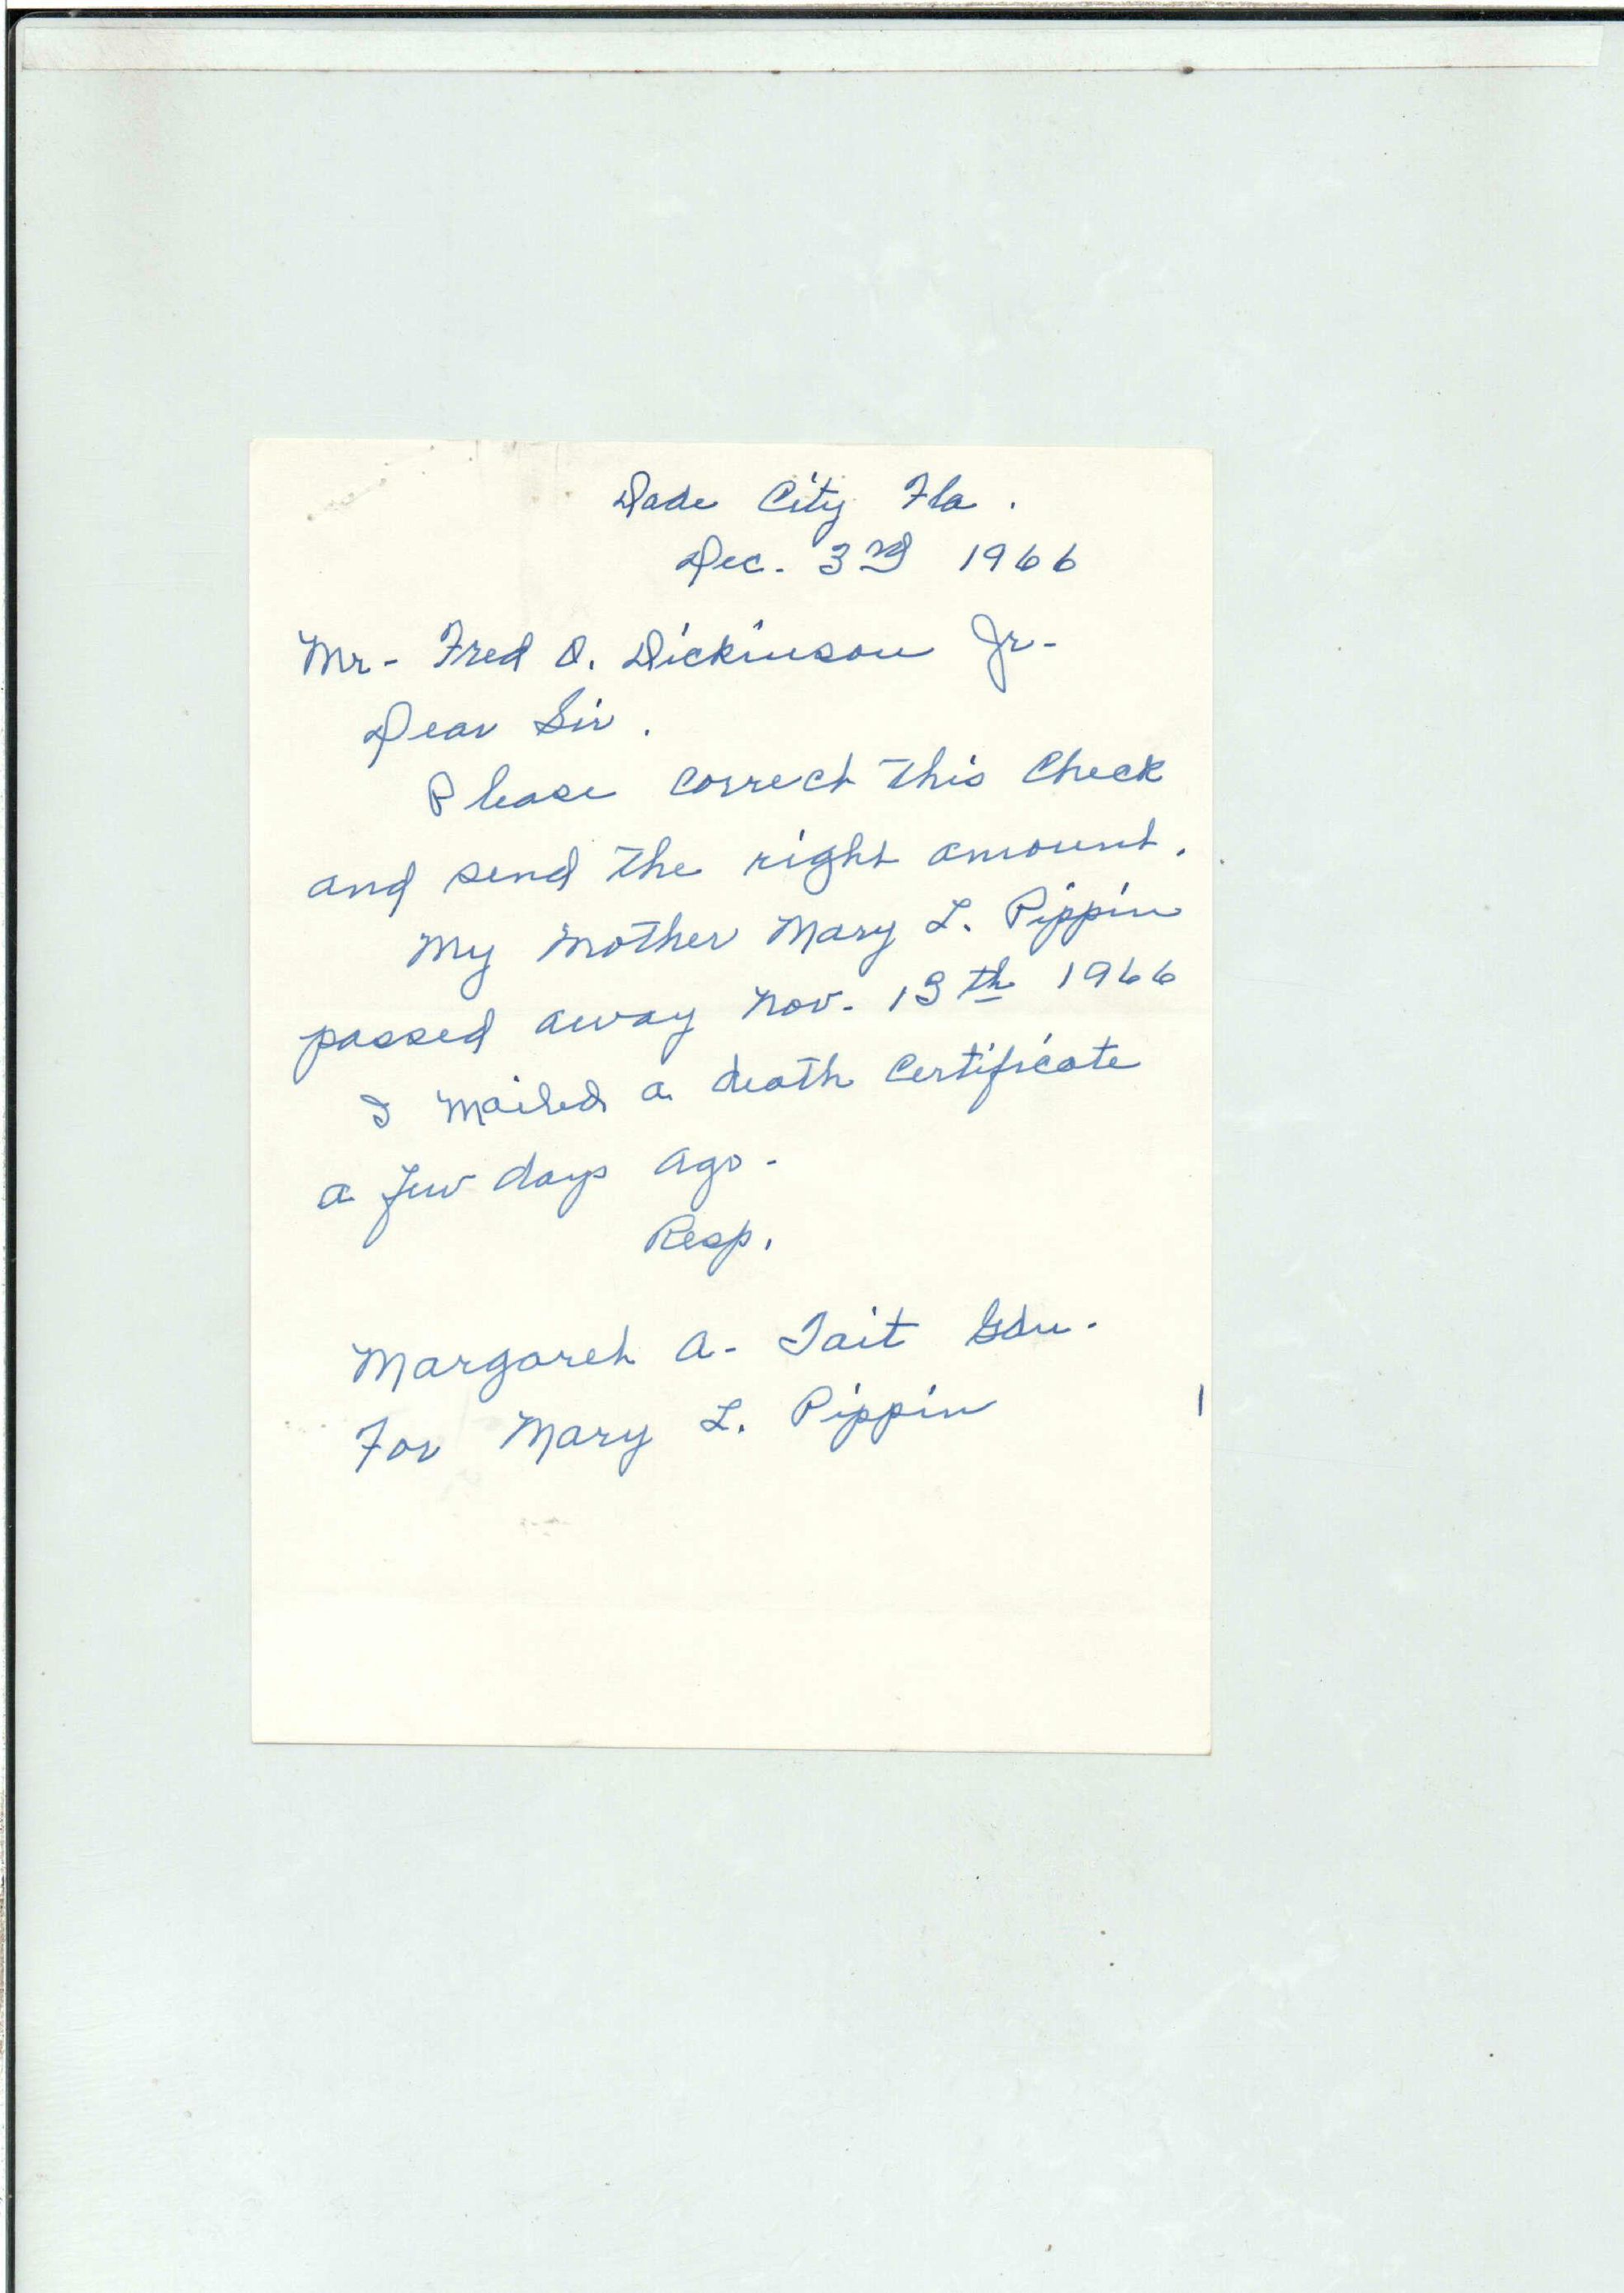 Dade City Fla.
Dec. 3rd 1966
Mr- Fred O. Dickinson Jr-
Dear Sir.
Please correct this Check
and send the right amount.
My Mother Mary L. Pippin
passed away Nov. 13th 1966
I mailed a death certificate
a few days ago-
Resp.
Margaret A- Tait Gdn-
For Mary L. Pippin